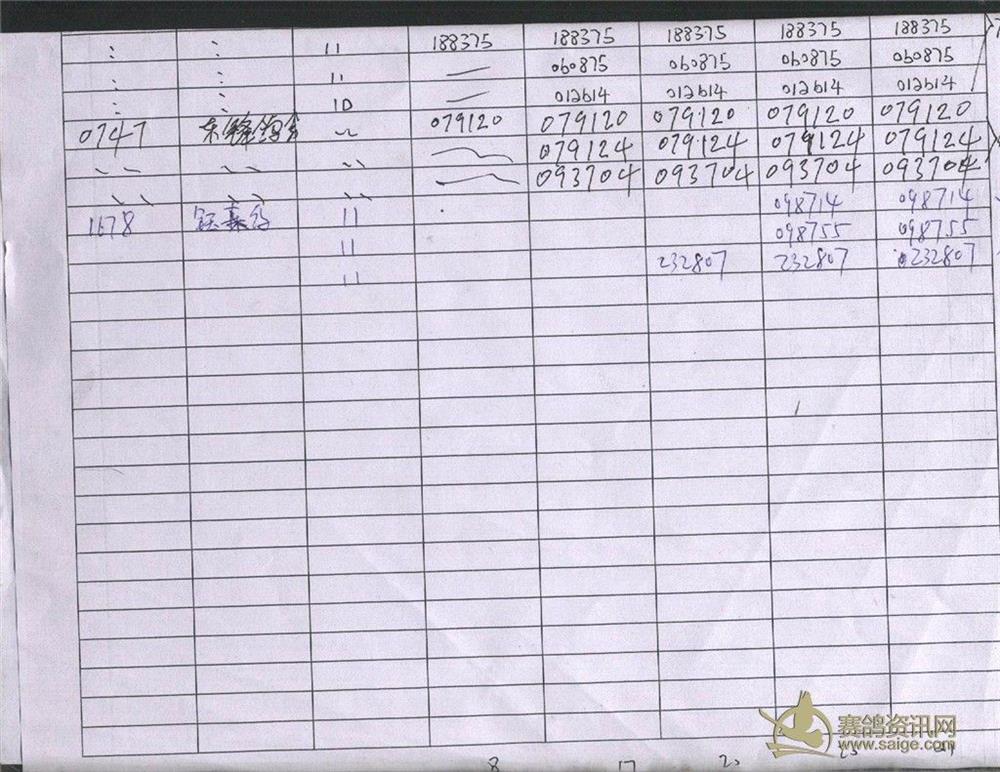 : : 11 188375 188375 188375 188375 188375
: : 11 — 060875 060875 060875 060875
: : 10 — 012614 012614 012614 012614
0747 079120 079120 079120 079120 079120
079124 079124 079124 079124
093704 093704 093704 093704
1678 11 098714 098714
11 098755 098755
11 232807 232807 232807
赛鸽资讯网
www.saige.com
8 17